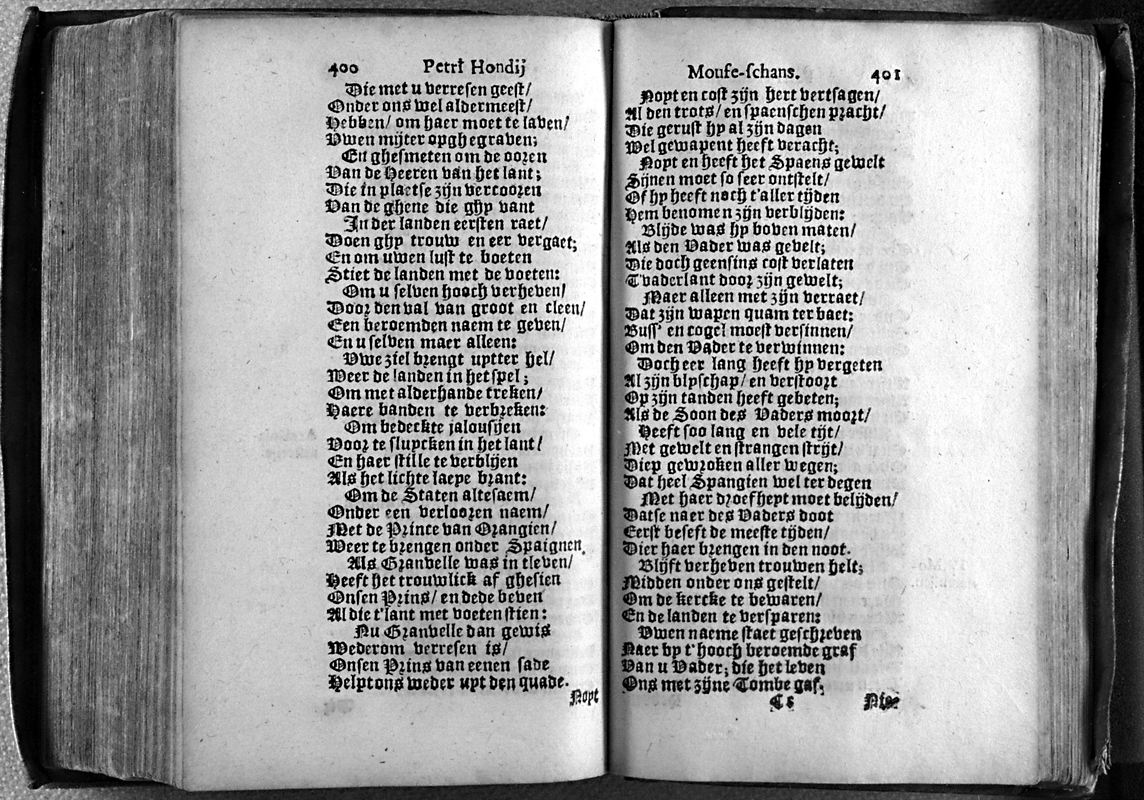 400 Petri Hondij
Die met u verresen geest/
Onder ons wel aldermeest/
Hebben/ om haer moet te laven/
Uwen mijter opghegraven;
En ghesmeten om de ooren
Van de Heeren van het lant;
Die in plaetse zijn vercooren
Van de ghene die ghy vant
In der landen eersten raet/
Doen ghy trouw en eer vergaet;
En om uwen lust te boeten
Stiet de landen met de voeten:
Om u selven hooch verheven/
Door den val van groot en cleen/
Een beroemden naem te geven/
En u selven maer alleen:
Uwe ziel brengt uytter hel/
Weer de landen in het spel;
Om met alderhande treken/
Haere banden te verbreken:
Om bedeckte jalousijen
Voor te sluycken in het lant/
En haer stille te verblijen
Als het lichte laeye brant:
Om de Staten altesaem/
Onder een verlooren naem/
Met de Prince van Orangien/
Weer te brengen onder Spaignen.
Als Granvelle was in tleven/
Heeft het trouwlick af ghesien
Onsen Prins/ en dede beven
Al die t'lant met voeten stien:
Nu Granvelle dan gewis
Wederom verresen is/
Onsen Prins van eenen sade
Helpt ons weder uyt den quade.
Noyt
Mouse-schans. 401
Noyt en cost zijn hert vertsagen/
Al den trots/ en spaenschen pracht/
Die gerust hy al zijn dagen
Wel gewapent heeft veracht;
Noyt en heeft het Spaens gewelt
Sijnen moet so seer ontstelt/
Of hy heeft noch t'aller tijden
Hem benomen zijn verblijden:
Blijde was hy boven maten/
Als den Vader was gevelt;
Die doch geensins cost verlaten
T'vaderlant door zijn gewelt;
Maer alleen met zijn verraet/
Dat zijn wapen quam ter baet:
Buss' en cogel moest versinnen/
Om den Vader te verwinnen:
Doch eer lang heeft hy vergeten
Al zijn blyschap/ en verstoort
Op zijn tanden heeft gebeten;
Als de Soon des Vaders moort/
Heeft soo lang en vele tijt/
Met gewelt en strangen strijt/
Diep gewroken aller wegen;
Dat heel Spangien wel ter degen
Met haer droefheyt moet belijden/
Datse naer des Vaders doot
Eerst beseft de meeste tijden/
Dier haer brengen in den noot.
Blijft verheven trouwen helt;
Midden onder ons gestelt/
Om de kercke te bewaren/
En de landen te versparen:
Uwen naeme staet geschreven
Naer by t'hooch beroemde graf
Van u Vader; die het leven
Ons met zijne Tombe gaf;